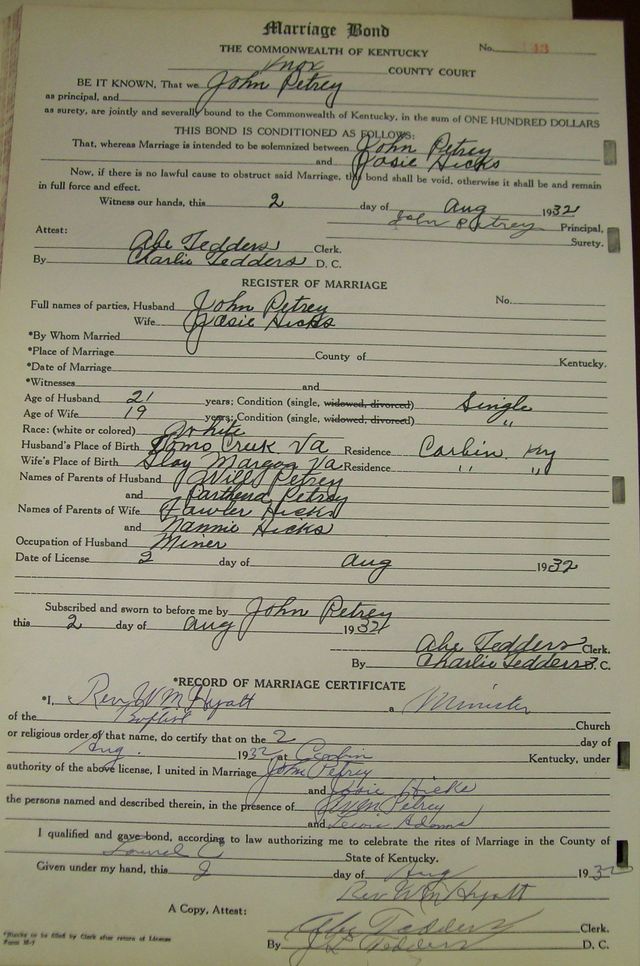 Marriage Bond
THE COMMONWEALTH OF KENTUCKY No. 13
Knox COUNTY COURT
BE IT KNOWN, That we John Petrey
as principal, and
as surety, are jointly and severally bound to the Commonwealth of Kentucky, in the sum of ONE HUNDRED DOLLARS
THIS BOND IS CONDITIONED AS FOLLOWS:
That, whereas Marriage is intended to be solemnized between John Petrey
and Josie Hicks
Now, if there is no lawful cause to obstruct said Marriage, this bond shall be void, otherwise it shall be and remain
in full force and effect.
Witness our hands, this 2 day of Aug 1932
John Petrey Principal,
Attest: Surety.
Abe Tedders Clerk.
By Charlie Tedders D. C.
REGISTER OF MARRIAGE
Full names of parties, Husband John Petrey No.
Wife Josie Hicks
*By Whom Married
*Place of Marriage County of Kentucky.
*Date of Marriage
*Witnesses and
Age of Husband 21 years; Condition (single, widowed, divorced) Single
Age of Wife 19 years; Condition (single, widowed, divorced) "
Race: (white or colored) White
Husband's Place of Birth Toms Creek Va Residence Corbin Ky
Wife's Place of Birth Va Residence " "
Names of Parents of Husband Will Petrey
and Parthena Petrey
Names of Parents of Wife Hicks
and Nannie Hicks
Occupation of Husband Miner
Date of License 2 day of Aug 1932
Subscribed and sworn to before me by John Petrey
this 2 day of Aug 1932
Abe Tedders Clerk.
By Charlie Tedders D. C.
*RECORD OF MARRIAGE CERTIFICATE
*I, Rev. W M Hyatt a Minister
of the Baptist Church
or religious order of that name, do certify that on the 2 day of
Aug. 1932 at Corbin Kentucky, under
authority of the above license, I united in Marriage John Petrey
and Josie Hicks
the persons named and described therein, in the presence of Petrey
and Adams
I qualified and gave bond, according to law authorizing me to celebrate the rites of Marriage in the County of
Laurel C State of Kentucky.
Given under my hand, this 2 day of Aug 1932
Rev W M Hyatt
A Copy, Attest:
Abe Tedders Clerk.
*Blanks to be filed by Clerk after return of License
Form M-1 By Tedders D. C.